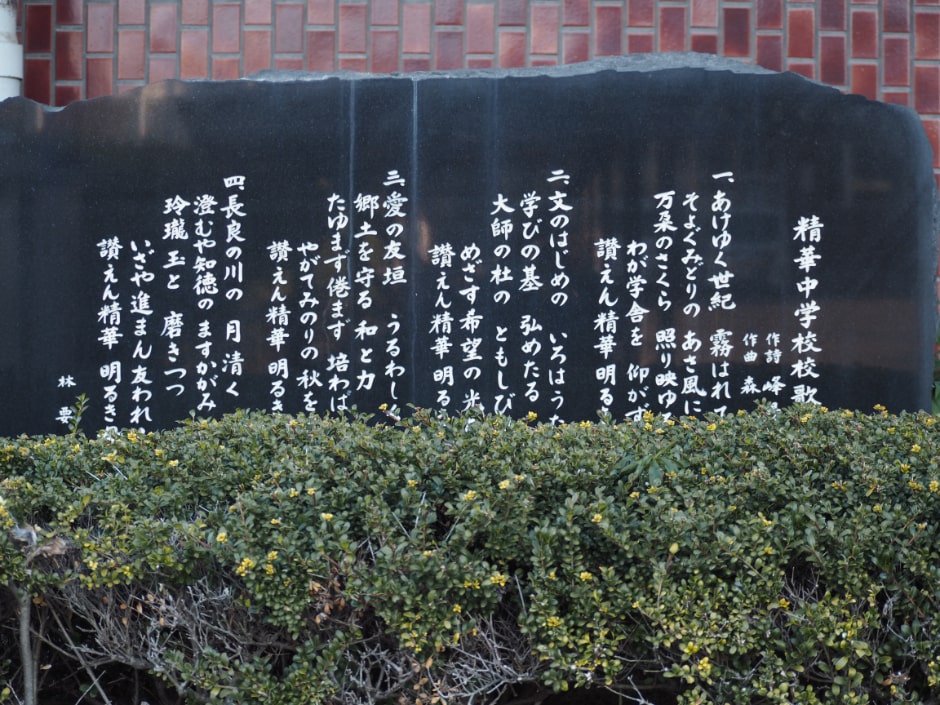 精華中学校校歌
作詩 峰
作曲 森
一、あけゆく世紀 霧はれて
そよぐみどりの あさ風に
万朶のさくら 照り映ゆる
わが学舎を 仰がず
讃えん精華 明る
二、文のはじめの いろはうた
学びの基 弘めたる
大師の杜の ともしび
めざす希望の 光
讃えん精華 明る
三、愛の友垣 うるわしく
郷土を守る 和と力
たゆまず倦まず 培わば
やがてみのりの 秋を
讃えん精華 明るき
四、長良の川の 月清く
澄むや知徳の ますかがみ
玲瓏 玉と 磨きつつ
いざや進まん 友われ
讃えん精華 明るき
林 要